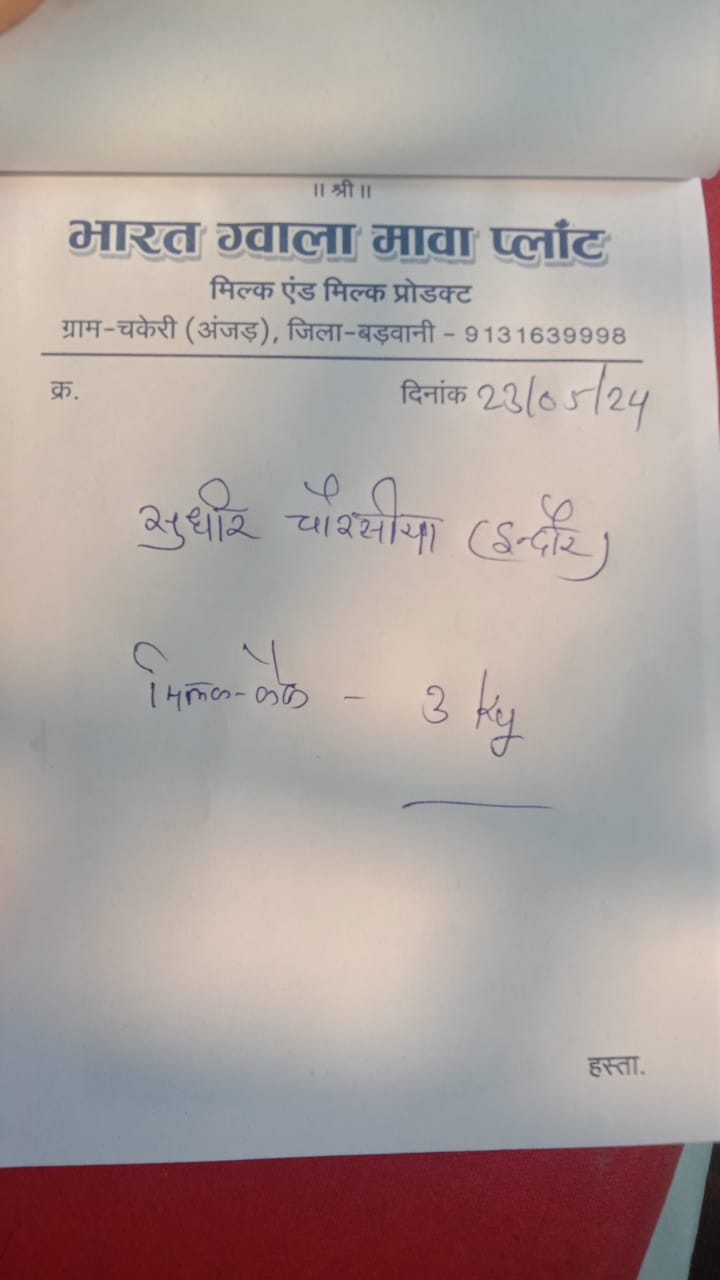 ॥ श्री ॥
भारत ग्वाला मावा प्लाँट
मिल्क एंड मिल्क प्रोडक्ट
ग्राम-चकेरी (अंजड़), जिला-बड़वानी - 9131639998
क्र. दिनांक 23/05/24
सुधीर चौरसीया (इन्दौर)
मिल्क-केक - 3 kg
हस्ता.